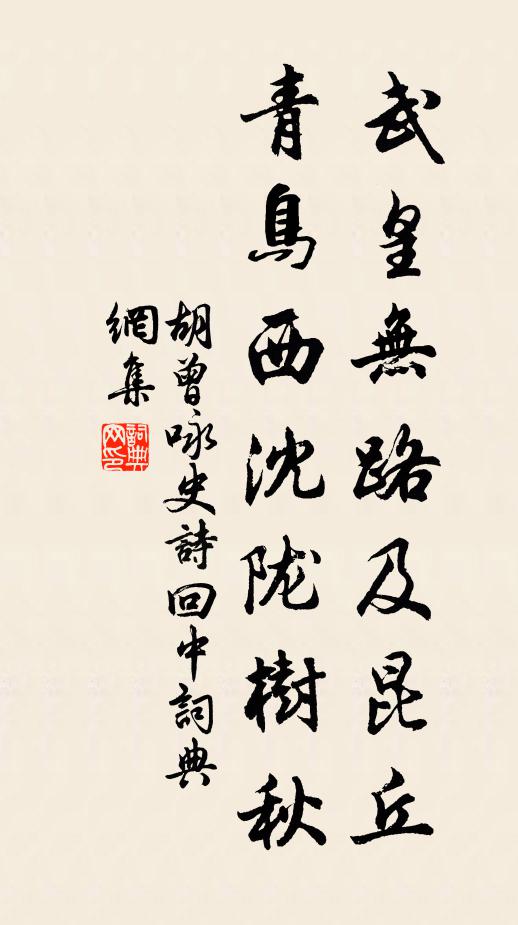 武皇無路及昆丘
青鳥西沈陇樹秋
胡曾咏史詩回中詞典
網集
詞典
网印